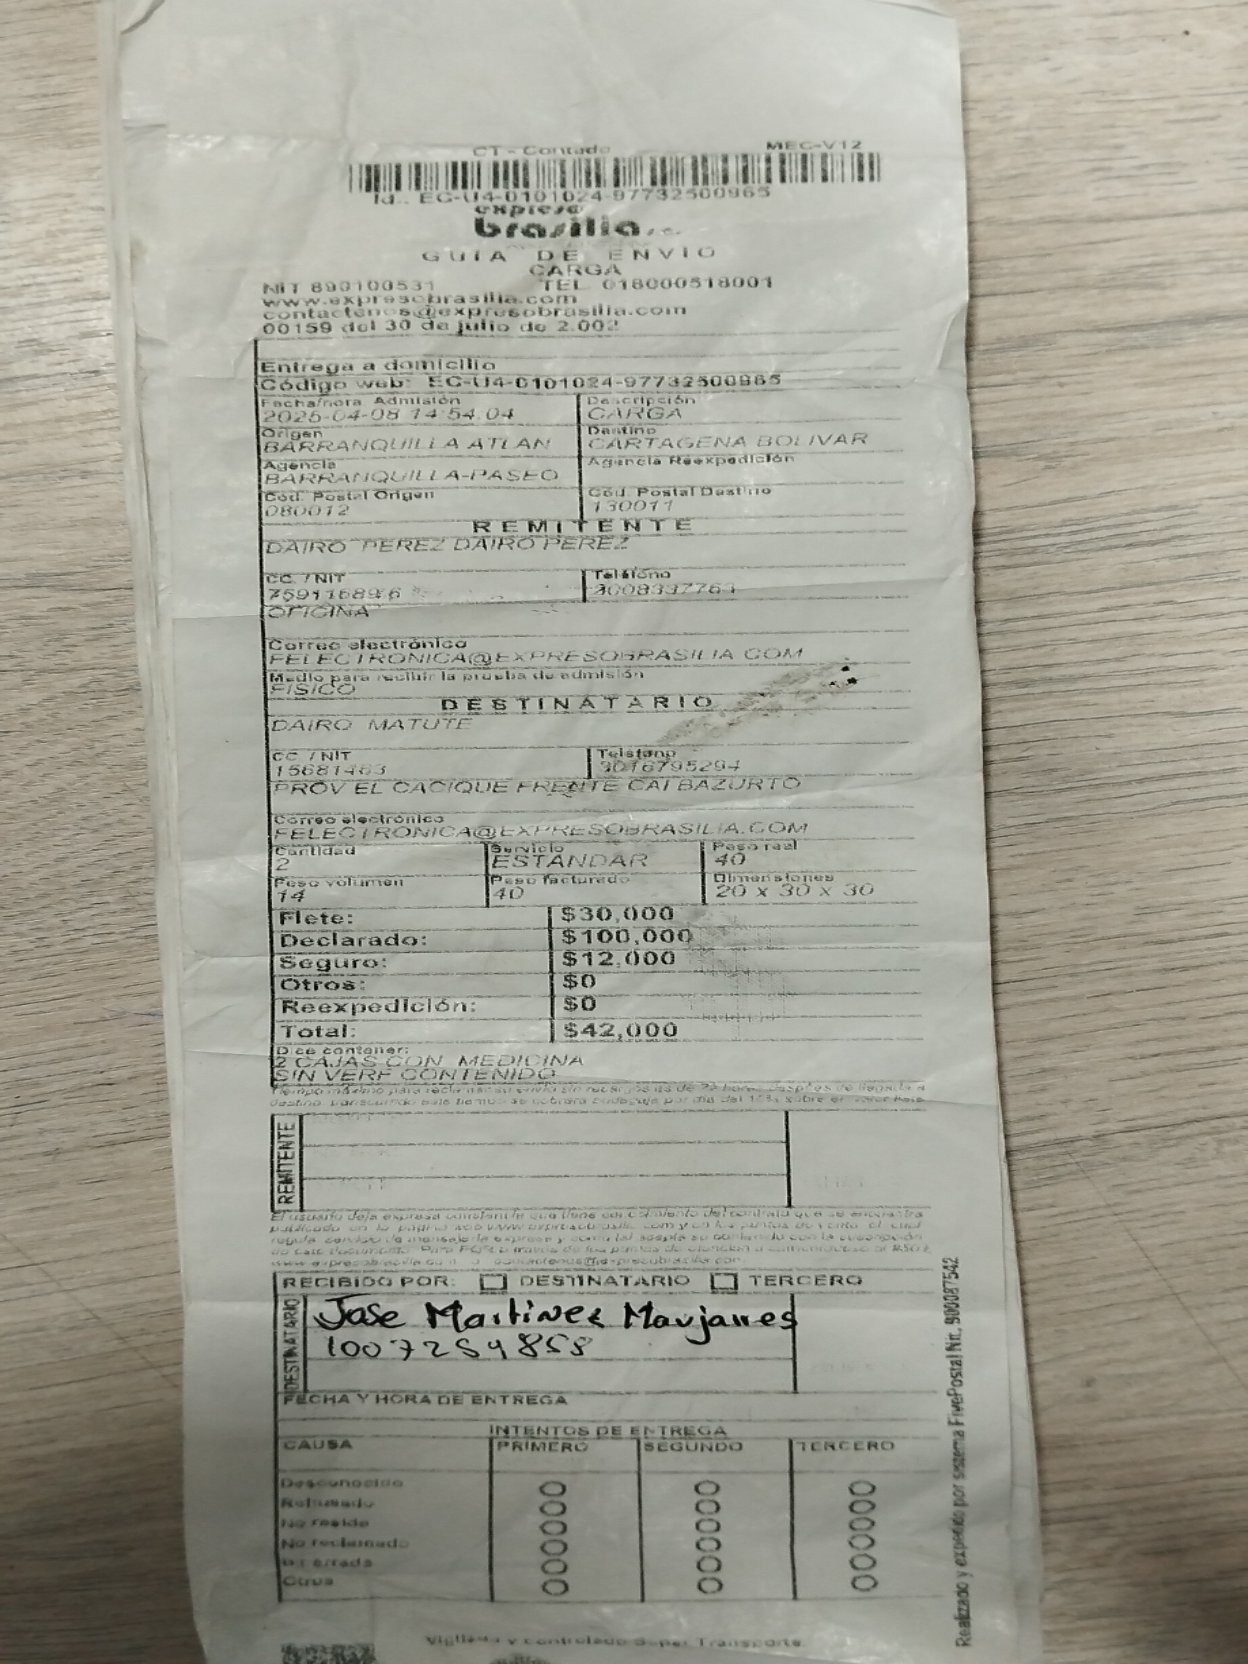 CT - Contado MEC-V12
Id.: EC-U4-0101024-97732500965
expreso
brasilia s.a.
GUIA DE ENVIO
CARGA
NIT 890100531 TEL. 018000518001
www.expresobrasilia.com
contactenos@expresobrasilia.com
00159 del 30 de julio de 2.002
Entrega a domicilio
Código web: EC-U4-0101024-97732500965
Fecha/hora Admisión Descripción
2025-04-08 14:54:04 CARGA
Origen Destino
BARRANQUILLA ATLAN CARTAGENA BOLIVAR
Agencia Agencia Reexpedición
BARRANQUILLA-PASEO
Cód. Postal Origen Cód. Postal Destino
080012 130011
REMITENTE
DAIRO PEREZ DAIRO PEREZ
CC. / NIT Teléfono
OFICINA
Correo electrónico
FELECTRONICA@EXPRESOBRASILIA.COM
Medio para recibir la prueba de admisión
FISICO
DESTINATARIO
DAIRO MATUTE
CC. / NIT Teléfono
15681463 3016795294
PROV EL CACIQUE FRENTE CAI BAZURTO
Correo electrónico
FELECTRONICA@EXPRESOBRASILIA.COM
Cantidad Servicio Peso real
2 ESTANDAR 40
Peso volumen Peso facturado Dimensiones
14 40 20 x 30 x 30
Flete: $30,000
Declarado: $100,000
Seguro: $12,000
Otros: $0
Reexpedición: $0
Total: $42,000
Dice contener:
2 CAJAS CON MEDICINA
SIN VERF CONTENIDO
REMITENTE
RECIBIDO POR: DESTINATARIO TERCERO
DESTINATARIO
Jose Martinez Manjarres
1007254858
FECHA Y HORA DE ENTREGA
INTENTOS DE ENTREGA
CAUSA PRIMERO SEGUNDO TERCERO
Desconocido
Rehusado
No reside
No reclamado
Dir errada
Otros
Vigilado y controlado Super Transporte
Realizado y expedido por sistema FivePostal Nit. 900087542